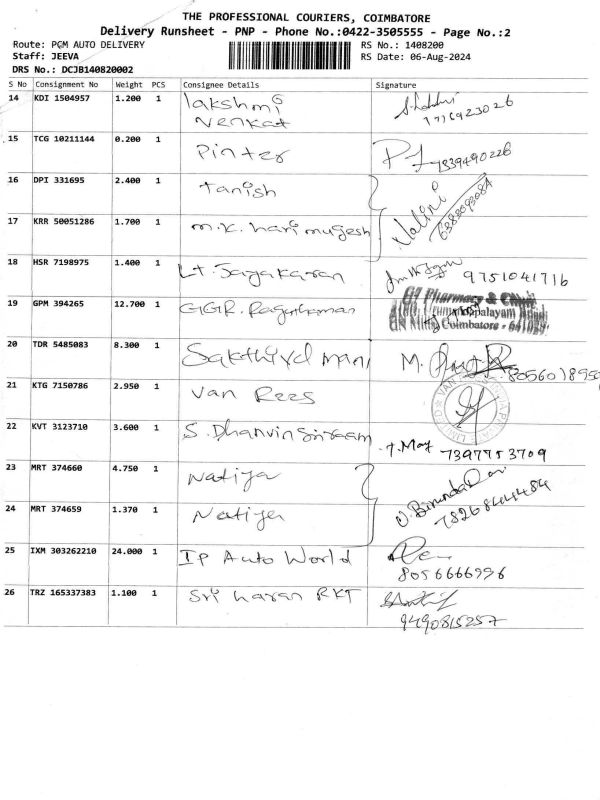 THE PROFESSIONAL COURIERS, COIMBATORE
Delivery Runsheet - PNP - Phone No.:0422-3505555 - Page No.:2
Route: PCM AUTO DELIVERY RS No.: 1408200
Staff: JEEVA RS Date: 06-Aug-2024
DRS No.: DCJB140820002
S No Consignment No Weight PCS Consignee Details Signature
14 KDI 1504957 1.200 1 lakshmi
Venkat
15 TCG 10211144 0.200 1 Pinter
16 DPI 331695 2.400 1 Tanish
17 KRR 50051286 1.700 1 M.K. hari mugesh Nalini
18 HSR 7198975 1.400 1 Lt. Jayakaran 9751041716
19 GPM 394265 12.700 1 GGR.
Pharmacy &
Coimbatore - 
20 TDR 5485083 8.300 1 Sakthivel mani M.
21 KTG 7150786 2.950 1 Van Rees
22 KVT 3123710 3.600 1 S. Dhanvin sriraam
7397753709
23 MRT 374660 4.750 1 Natiya
24 MRT 374659 1.370 1 Natiya
25 IXM 303262210 24.000 1 IP Auto World
8056666996
26 TRZ 165337383 1.100 1 Sri haran RKT
9490815257